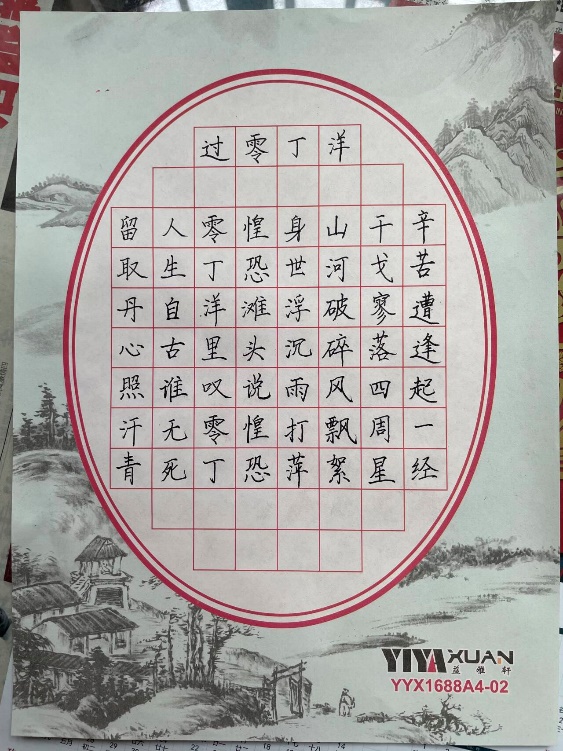 过零丁洋
辛苦遭逢起一经
干戈寥落四周星
山河破碎风飘絮
身世浮沉雨打萍
惶恐滩头说惶恐
零丁洋里叹零丁
人生自古谁无死
留取丹心照汗青
YIYAXUAN
益雅轩
YYX1688A4-02